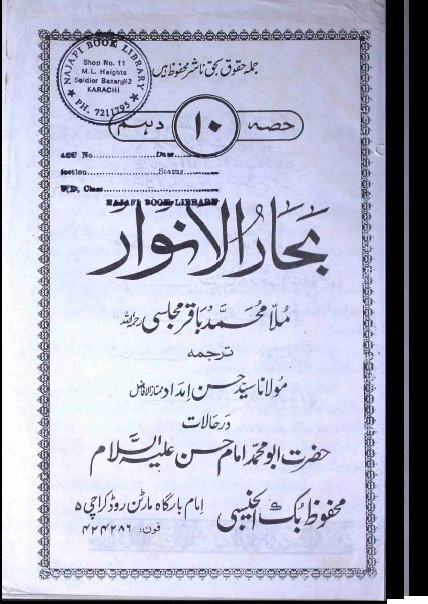 جملہ حقوق بحق ناشر محفوظ ہیں
NAJAFI BOOK LIBRARY
Shop No. 11
M.L. Heights
Soldier Bazar#2
KARACHI
PH. 7211795
حصہ ۱۰ دہم
Acc No. Date
Section Status
D. Class
NAJAFI BOOK LIBRARY
بحار الانوار
مُلّا محمد باقر مجلسی رحمہ اللہ
ترجمہ
مولانا سید حسن امداد ممتاز الافاضل
در حالات
حضرت ابو محمد امام حسن علیہ السلام
محفوظ بک ایجنسی
امام بارگاہ مارٹن روڈ کراچی ۵
فون: ۴۲۴۲۸۶